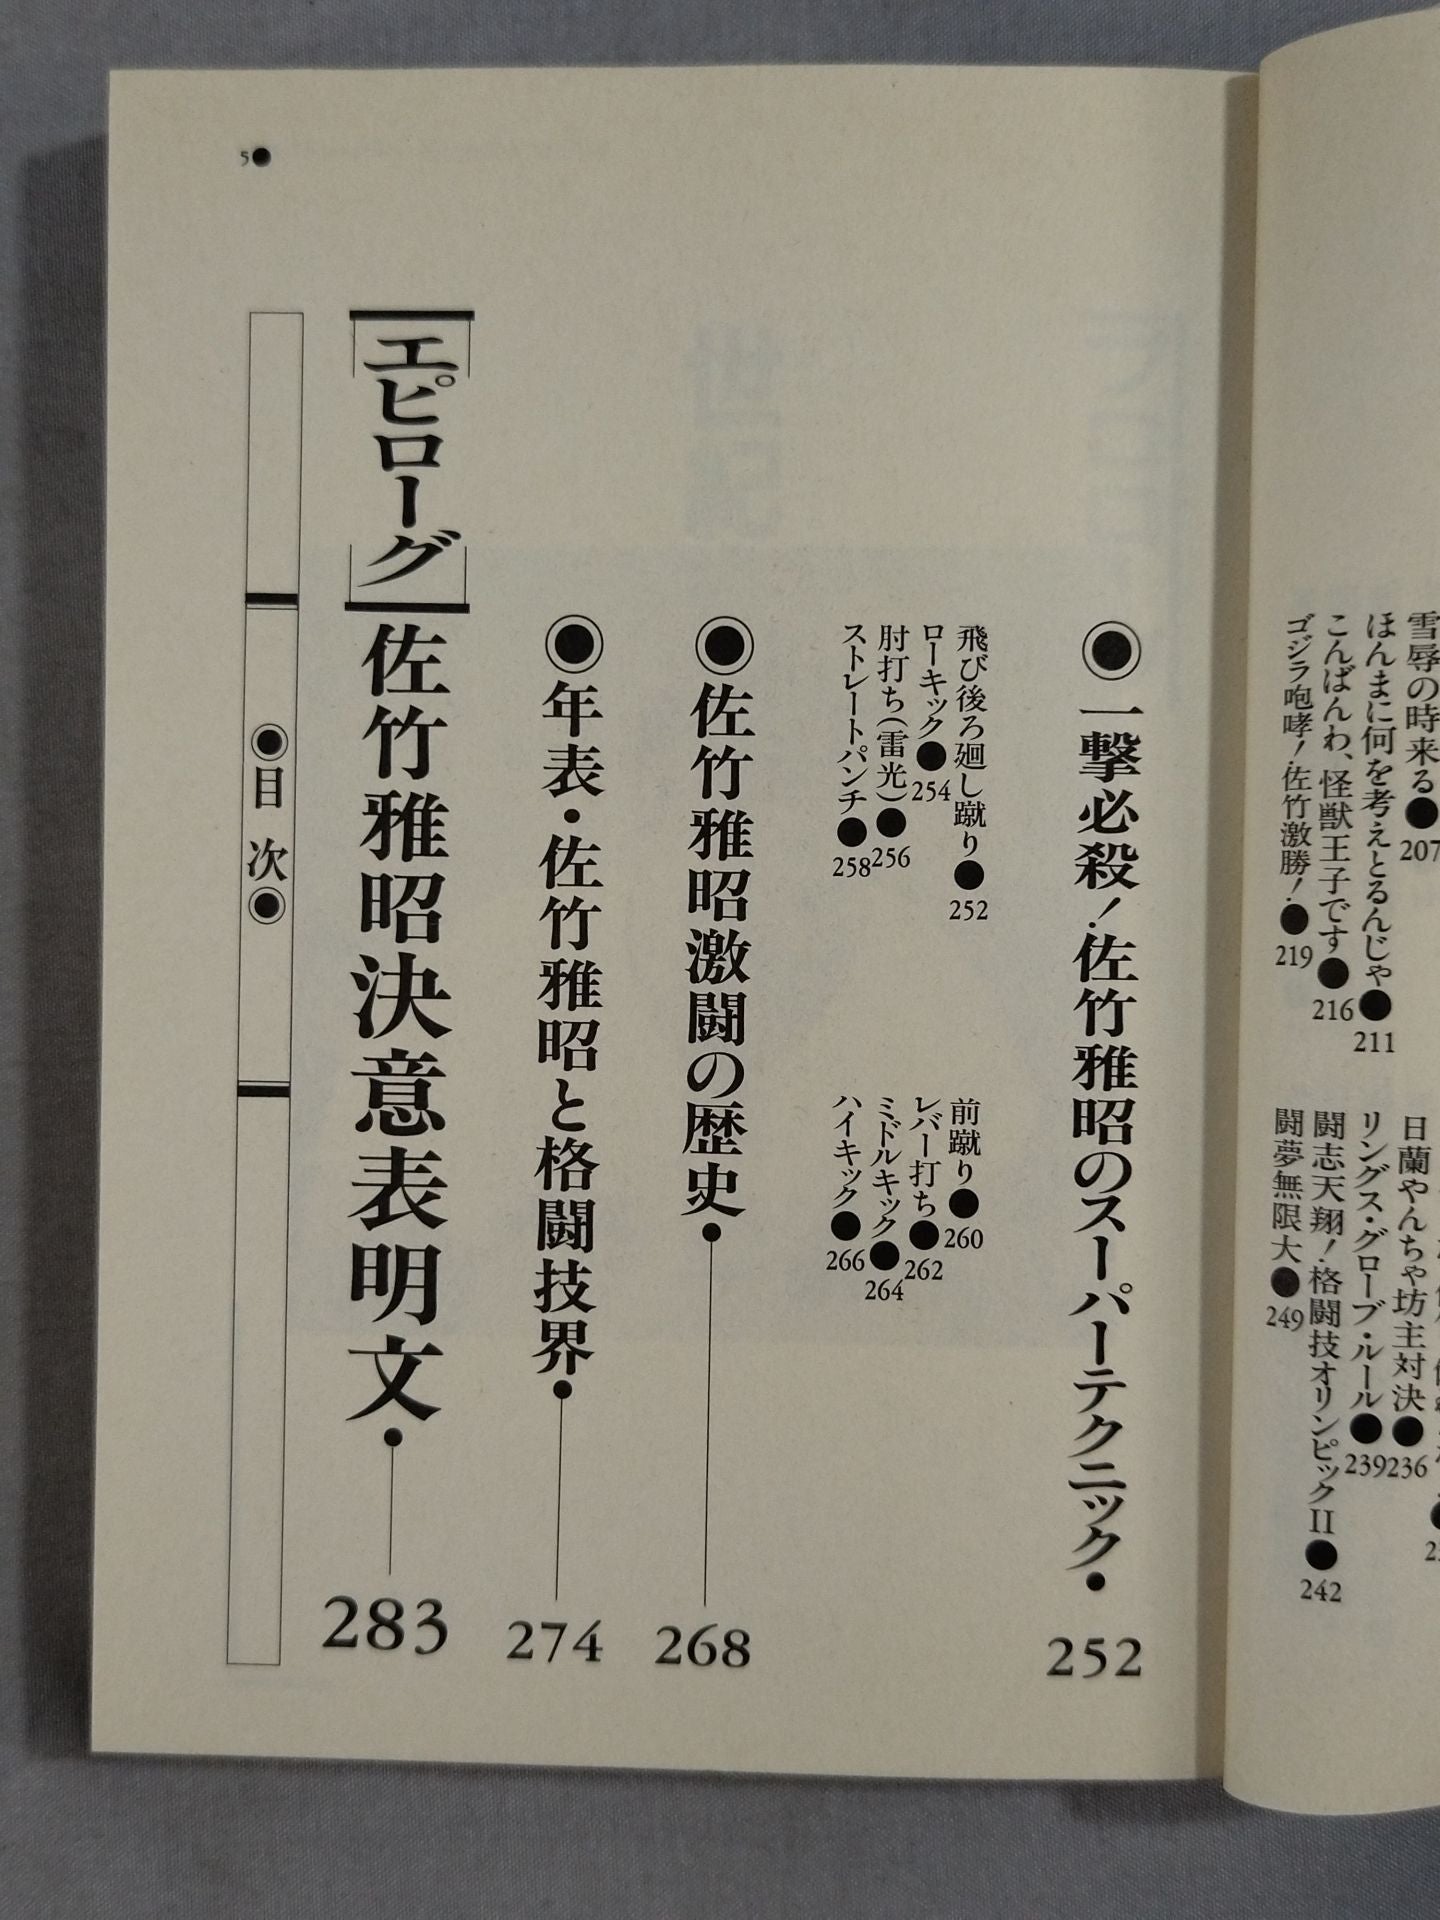 雪辱の時来る●207
ほんまに何を考えとるんじゃ●211
こんばんわ、怪獣王子です●216
ゴジラ咆哮!佐竹激勝!●219
日蘭やんちゃ坊主対決●236
リングス・グローブ・ルール●239
闘志天翔!格闘技オリンピックII●242
闘夢無限大●249
◉一撃必殺!佐竹雅昭のスーパーテクニック・252
飛び後ろ廻し蹴り●252
ローキック●254
肘打ち(雷光)●256
ストレートパンチ●258
前蹴り●260
レバー打ち●262
ミドルキック●264
ハイキック●266
◉佐竹雅昭激闘の歴史・268
◉年表・佐竹雅昭と格闘技界・274
[エピローグ]佐竹雅昭決意表明文・283
◉目次◉
5●